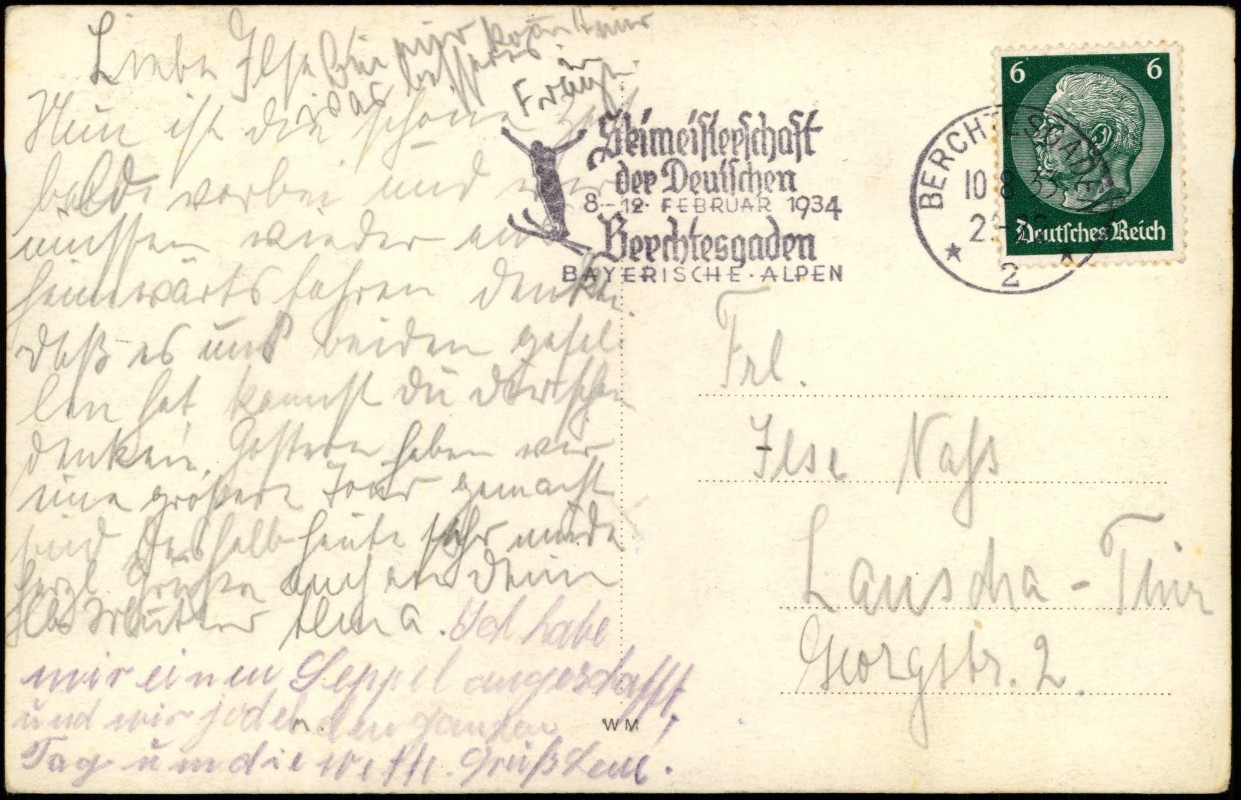 Liebe Ilse bei
Nun ist die schöne Zeit
balde vorbei und wir
müssen wieder
heimwärts fahren denke
daß es uns beiden gefal-
len hat kannst du dir schon
denken. Gestern haben wir
eine größere Tour gemacht
sind deshalb heute sehr müde
Herzl. Grüße auch an deine
lb Mutter Ilena. Ich habe
mir einen Seppel angeschafft
und wir jodeln den ganzen
Tag um die Wette. Gruß
das besseres
in
WM
Skimeisterschaft
der Deutschen
8-12. FEBRUAR 1934
Berchtesgaden
BAYERISCHE · ALPEN
BERCHTESGADEN
10 8 33
2
6 6
Deutsches Reich
Frl.
Ilse
Lauscha - Thür
Georgstr. 2.